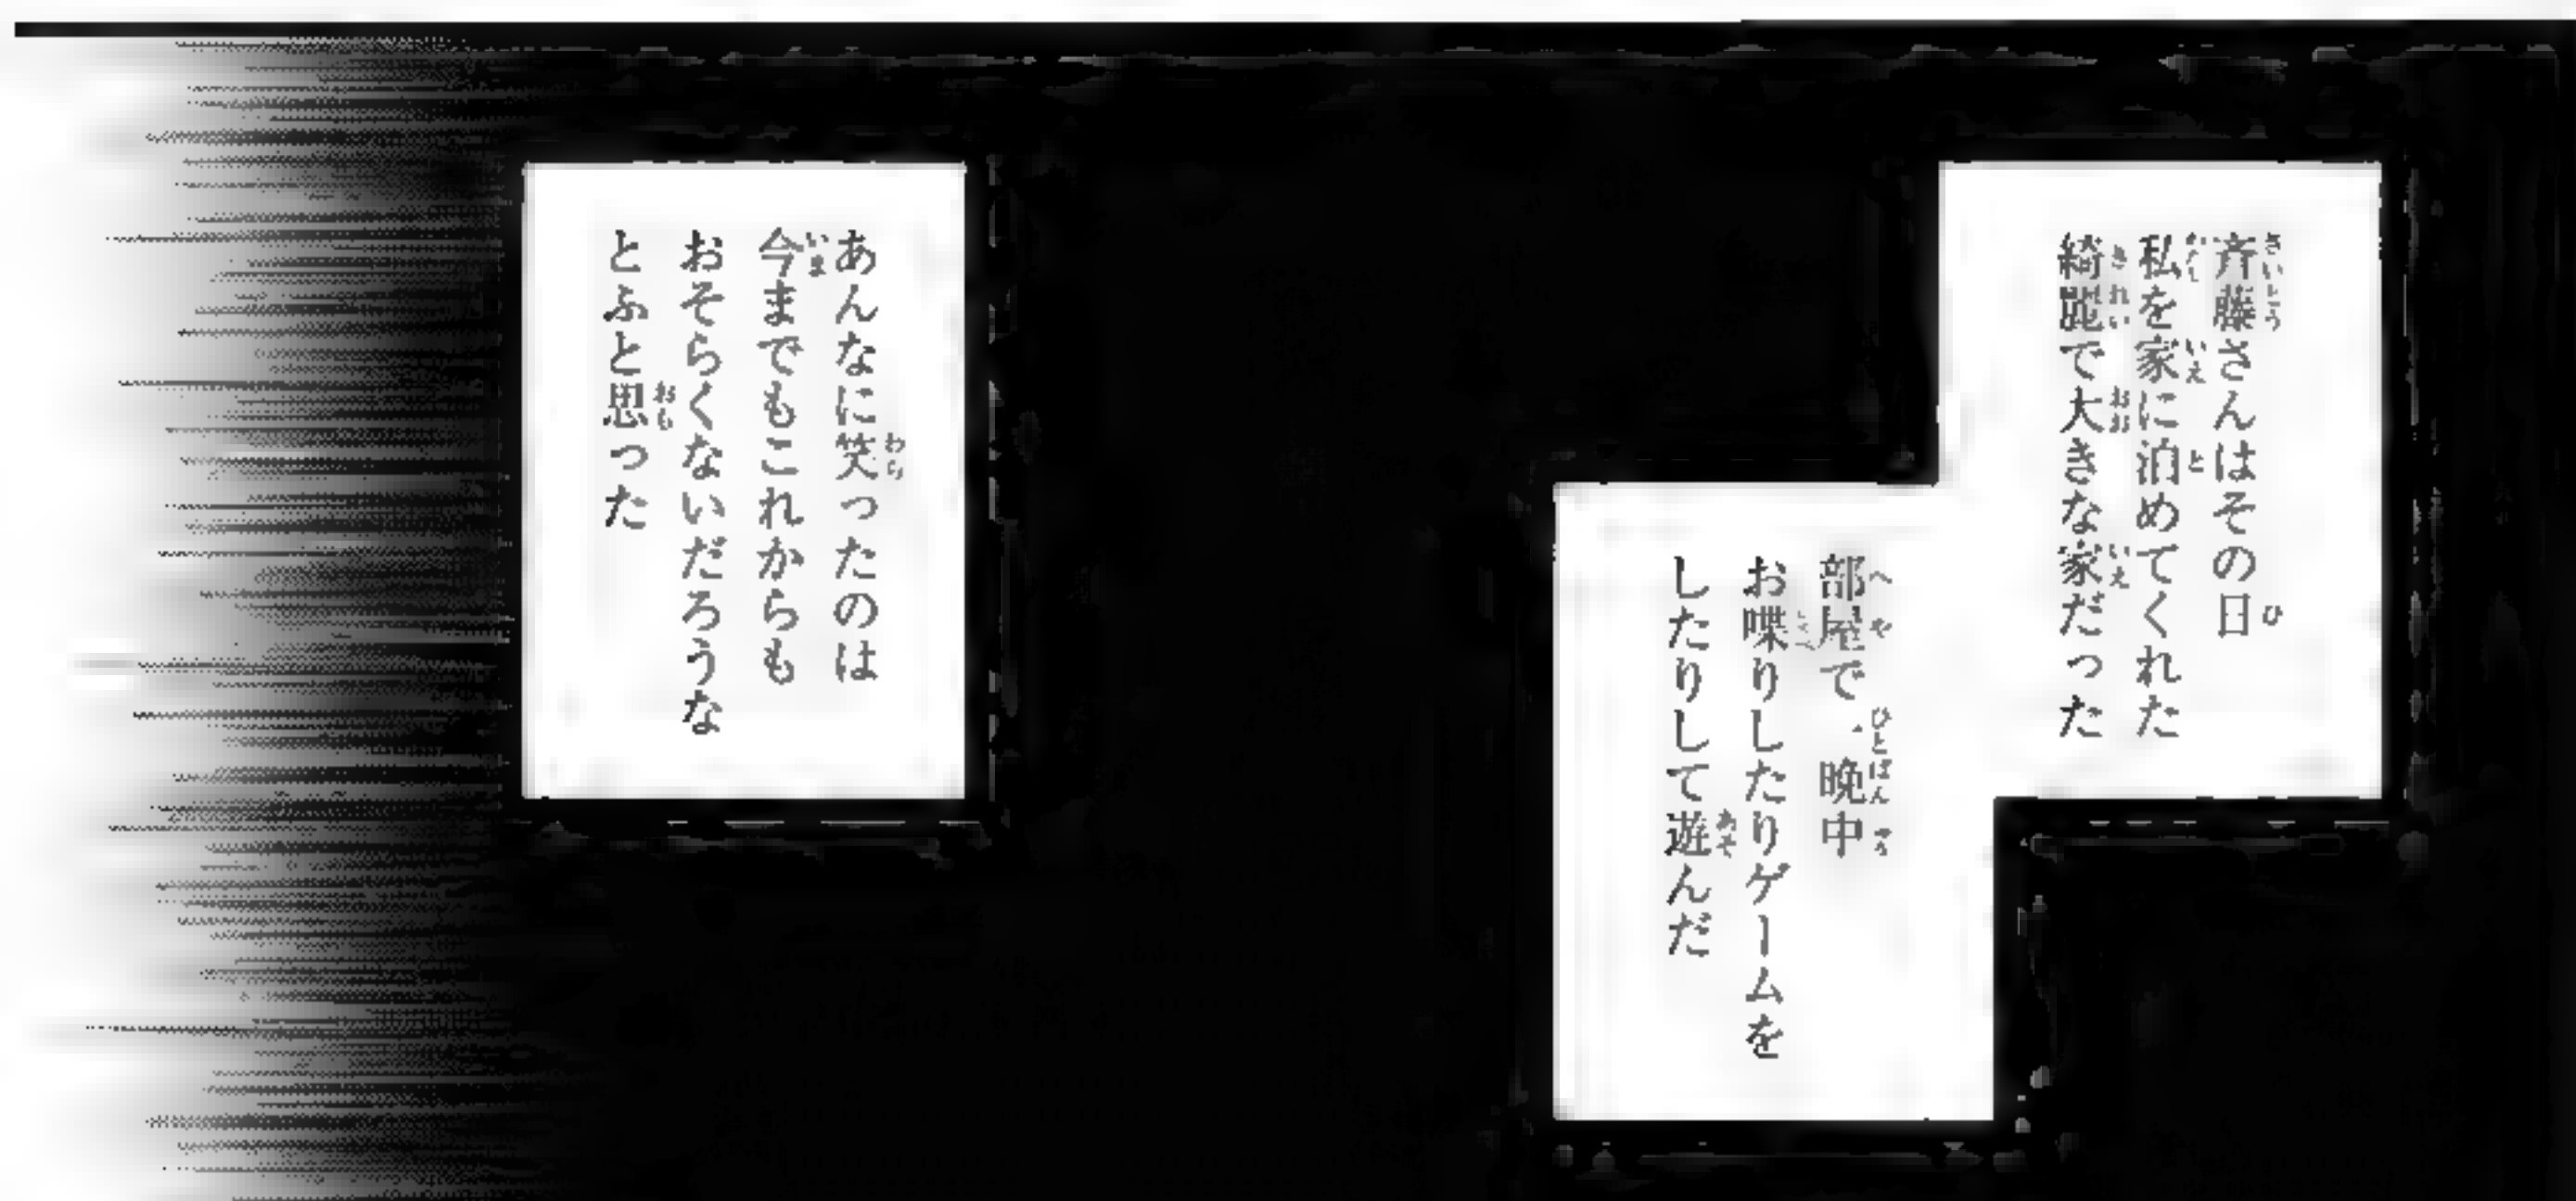 斉藤さんはその日
私を家に泊めてくれた
綺麗で大きな家だった
部屋で一晩中
お喋りしたりゲームを
したりして遊んだ
あんなに笑ったのは
今まででもこれからも
おそらくないだろうな
とふと思った